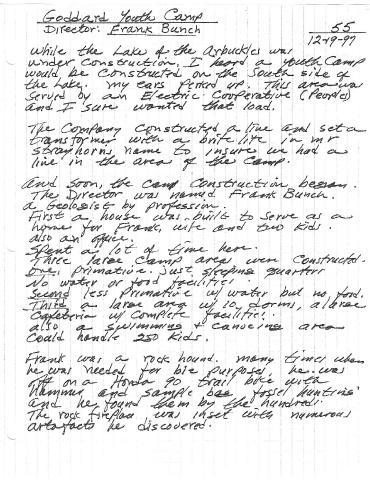 Goddard Youth Camp
Director: Frank Bunch
55
12-19-97
While the Lake of the Arbuckles was
under construction. I heard a youth camp
would be constructed on the south side of
the Lake. My ears perked up. This area was
served by an Electric Cooperative (Peoples)
and I sure wanted that load.
The Company constructed a line and set a
transformer with a brite lite in Mr
Strayhorns name to insure we had a
line in the area of the camp.
And soon, the camp construction began.
The Director was named Frank Bunch.
a Geologist by profession.
First a house was built to serve as a
home for Frank, wife and two kids.
also an office.
Spent a lot of time here.
Three large Camp area were constructed.
one, primative. Just sleeping quarters
No water or food facilities.
Second less primative w/ water but no food.
Third a large area w/ 10 dorms, a large
Cafeteria w/ complete facilities.
also a swimming & canoeing area
Could handle 250 kids.
Frank was a rock hound. Many times when
he was needed for biz purposes, he was
off on a Honda 90 trail bike with
hammer and sample bag fossel hunting
and he found them by the hundreds.
The rock fireplace was inset with numerous
artafacts he discovered.